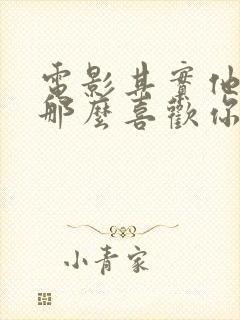 電影其實他
那麼喜歡你
小青家